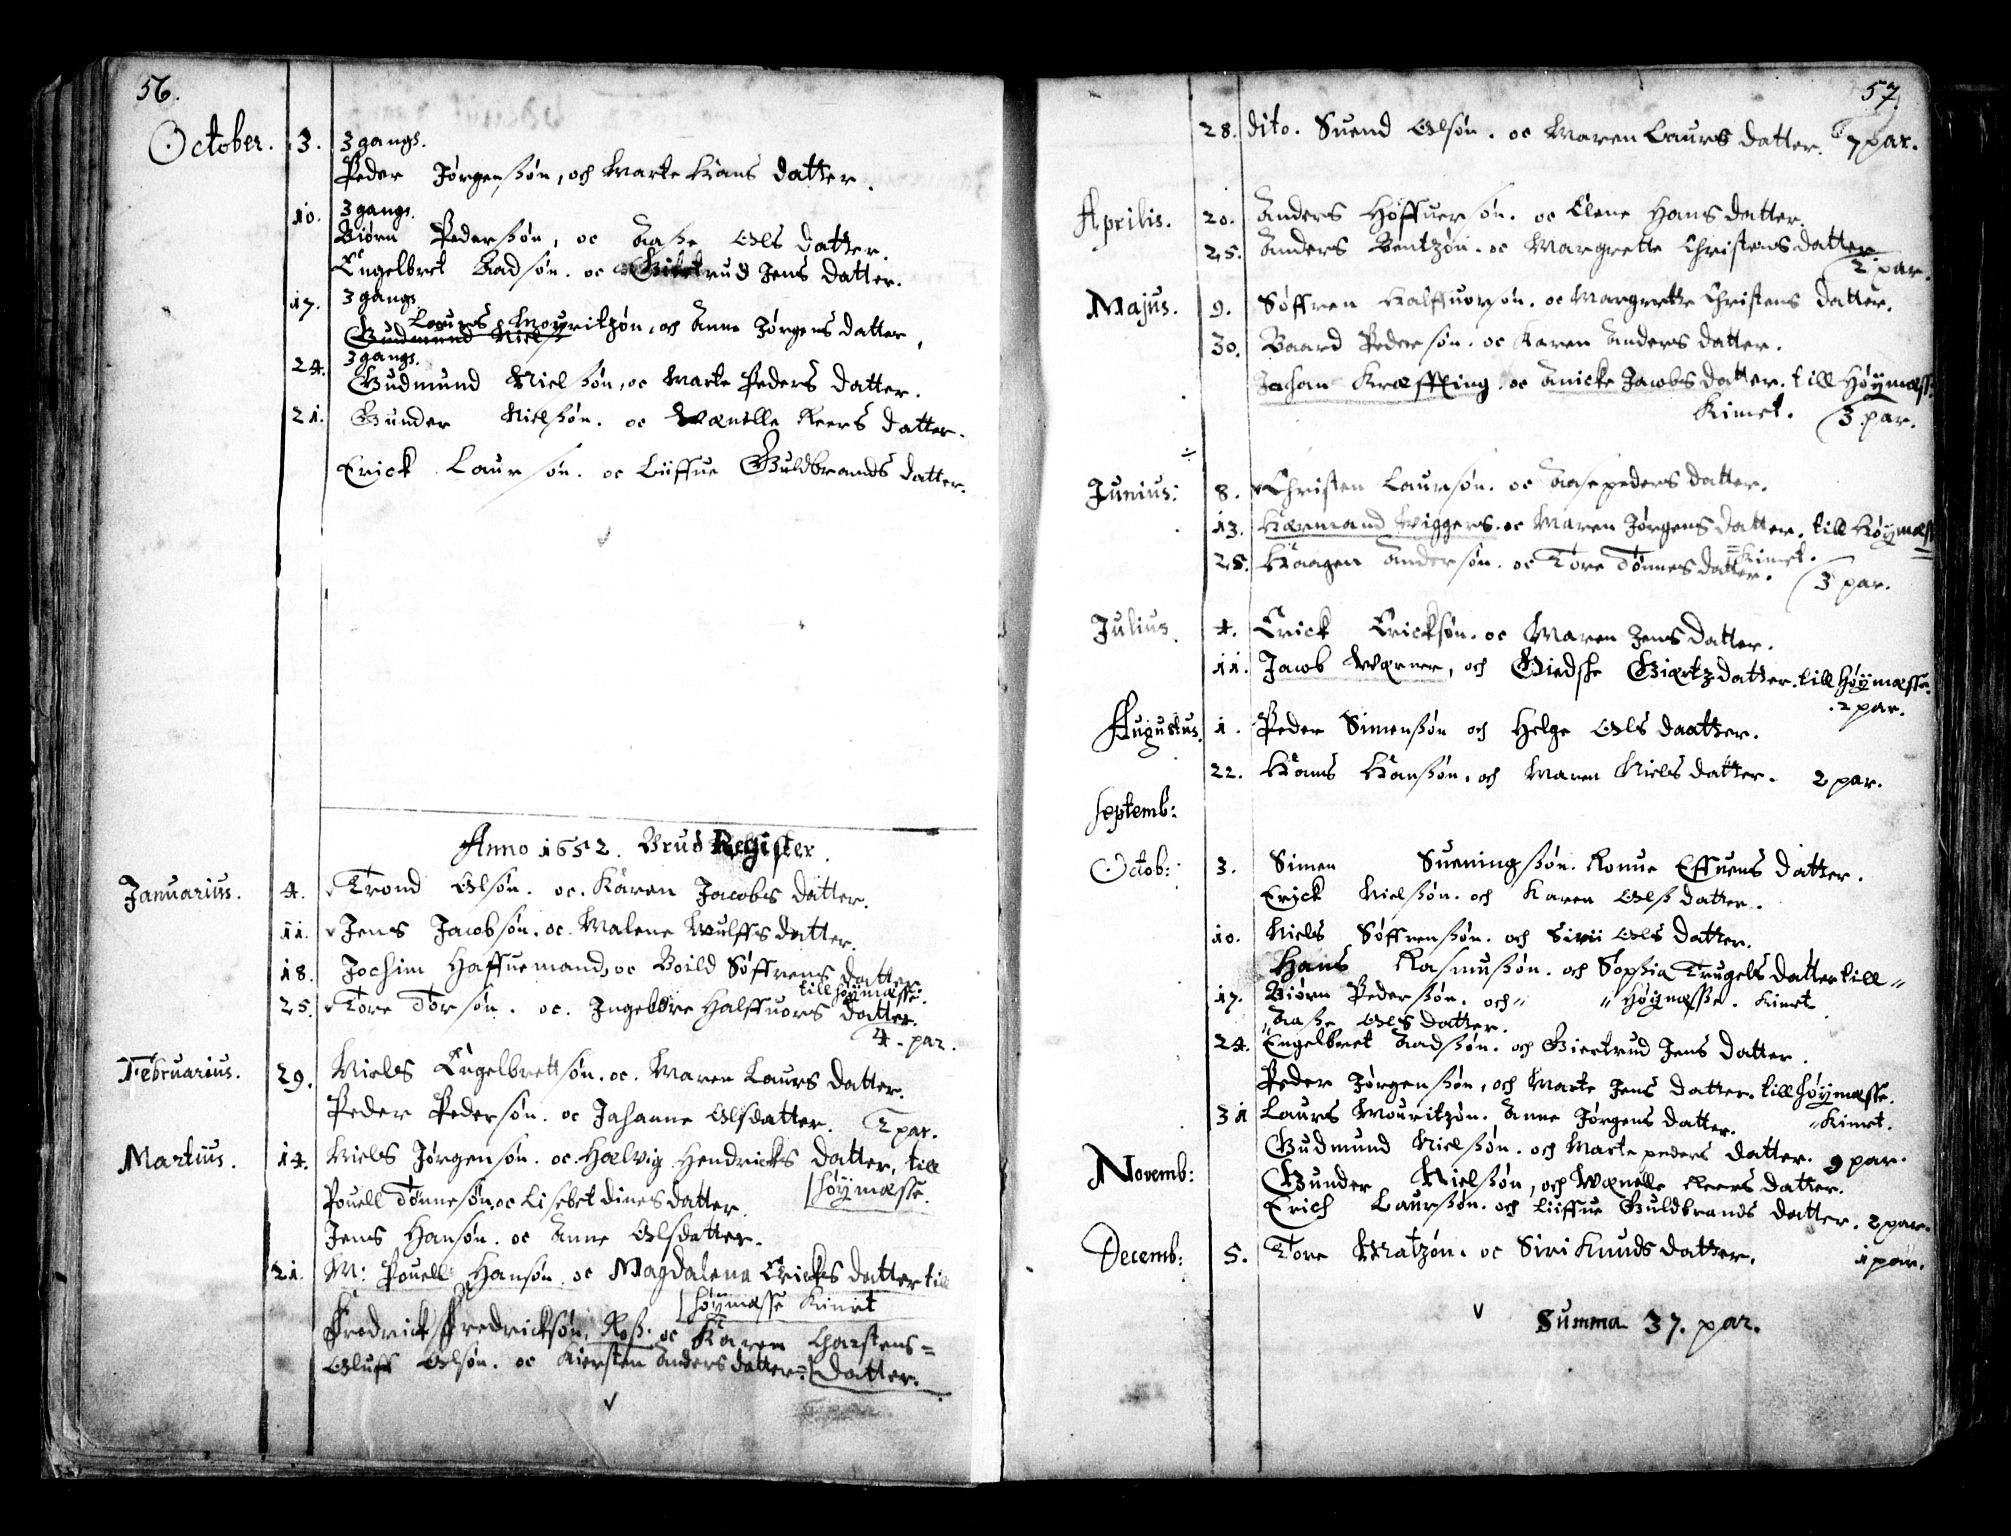 56.
October. 3. 3 gangs.
Peder Jørgensßøn, och Marte Hans datter.
10. 3 gangs.
Biørn Pedersßøn, oc Aaße Ols datter.
Engelbret Aadsøn. oc Giertrud Jens datter.
17. 3 gangs.
Laurs Mouritzøn, och Anne Jørgens datter,
Gudmund Niels
24. 3 gangs.
Gudmund Nielsßøn, oc Marte Peders datter.
21. Gunder Nielsßøn. oc Wænelle Reers datter.
Erick Laursøn. oc Liiffue Guldbrands datter.
Anno 1652. Brud Register.
Januarius. 4. Trond Olsøn. oc. Karen Jacobs datter.
11. Jens Jacobsøn. oc. Malene Wulffs datter.
18. Jochim Haffuemand, oc Boild Søffrens datter.
till høymæsse.
25. Tore Torsøn. oc. Ingebore Halffuors datter.
4. par.
Februarius. 29. Niels Engelbrettsøn. oc. Maren Laurs datter.
Peder Pedersøn. oc Johanne Olsdatter. 2 par.
Martius. 14. Niels Jørgensøn. oc. Hælvig Hendricks datter, till
høymæsse.
Pouell Tønnesøn. oc Lisebet dines datter.
Jens Hansøn. oc Anne Olsdatter.
21. M: Pouell Hansøn. oc Magdalena Ericks datter till
høymæsse Kimet
Fredrick Fredricksøn. Roß. oc Karen Charstens=
Oluff Olsøn. oc Kiersten Anders datter= datter.
57
28. dito. Suend Olsøn. oc Maren Laurs datter. 7 par.
Aprilis. 20. Anders Høffuersøn. oc Elene Hans datter.
25. Anders Bentzøn. oc Margrette Christens datter
2 par.
Majus. 9. Søffren Halffuorsøn. oc Margrette Christens datter.
30. Baard Pedersøn. oc Karen Anders datter.
Johan Kræffting. oc Anicke Jacobs datter. till Høymæsse
Kimet. 3 par.
Junius: 8. Christen Laursøn. oc Aase peders datter.
13. Hærmand Wiggers. oc Maren Jørgens datter. till Høymæss
=Kimet.
25. Haagen Andersøn. oc Tore Tønnes datter. 3 par.
Julius. 4. Erick Ericksøn. oc Maren Jens datter.
11. Jacob Wærner, och Giedske Giærtz datter. till høymæsse.
2 par.
Augustus. 1. Peder Simensßøn och Helge Ols daatter.
22. Hans Hansßøn, och Maren Niels datter. 2 par.
Septemb:
Octob: 3. Simen Sueningsßøn. Ronue Effuens datter.
Erick Nielsßøn. och Karen Olß datter.
10. Niels Søffrensßøn. och Sirii Ols datter.
Hans Rasmusßøn. och Sophia Trugels datter till "
17. Biørn Pedersßøn. och " " Høymæsse. Kimet.
"Aaße Ols datter.
24. Engelbret Aadsßøn. och Giertrud Jens datter.
Peder Jørgensßøn, och Marte Jens datter. till høymæsse.
31 Laurs Mouritzøn. Anne Jørgens datter. "Kimet.
Gudmund Nielsßøn. och Marte peders datter. 9 par.
Novemb: Gunder Nielsßøn, och Wænelle Reers datter.
Erich Laursßøn. och Liiffue Guldbrands datter. 2 par.
Decemb: 5. Tore Matzøn. oc Siri Knuds datter. 1 par.
Summa 37. par.